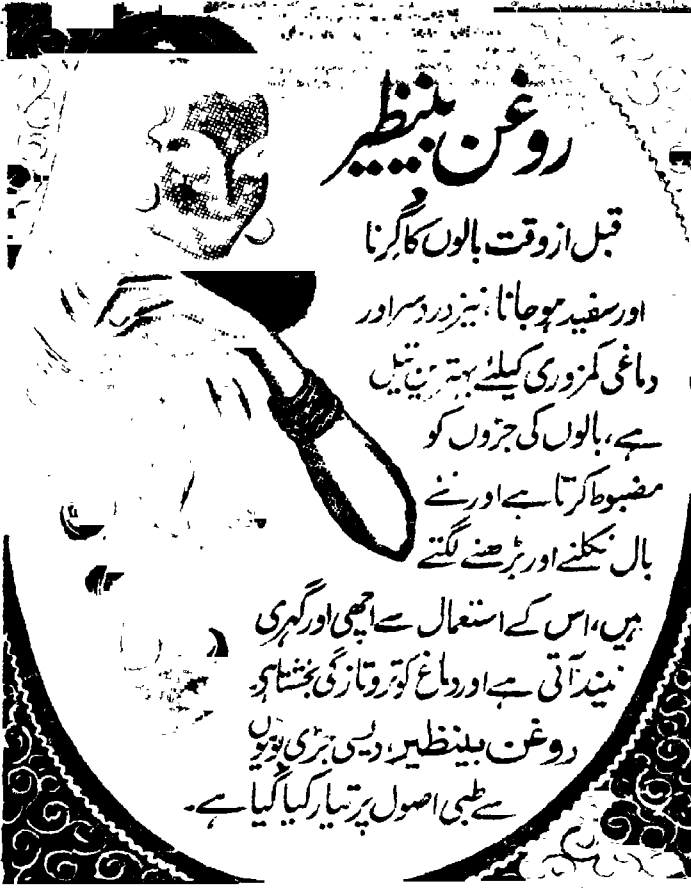 روغن بینظیر
قبل از وقت بالوں کا گرنا
اور سفید ہوجانا، نیز دردِ سر اور
دماغی کمزوری کیلئے بہترین تیل
ہے، بالوں کی جڑوں کو
مضبوط کرتا ہے اور نئے
بال نکلنے اور بڑھنے لگتے
ہیں، اس کے استعمال سے اچھی اور گہری
نیند آتی ہے اور دماغ کو تروتازگی بخشتا ہے۔
روغن بینظیر، دیسی جڑی بوٹیوں
سے طبی اصول پر تیار کیا گیا ہے۔